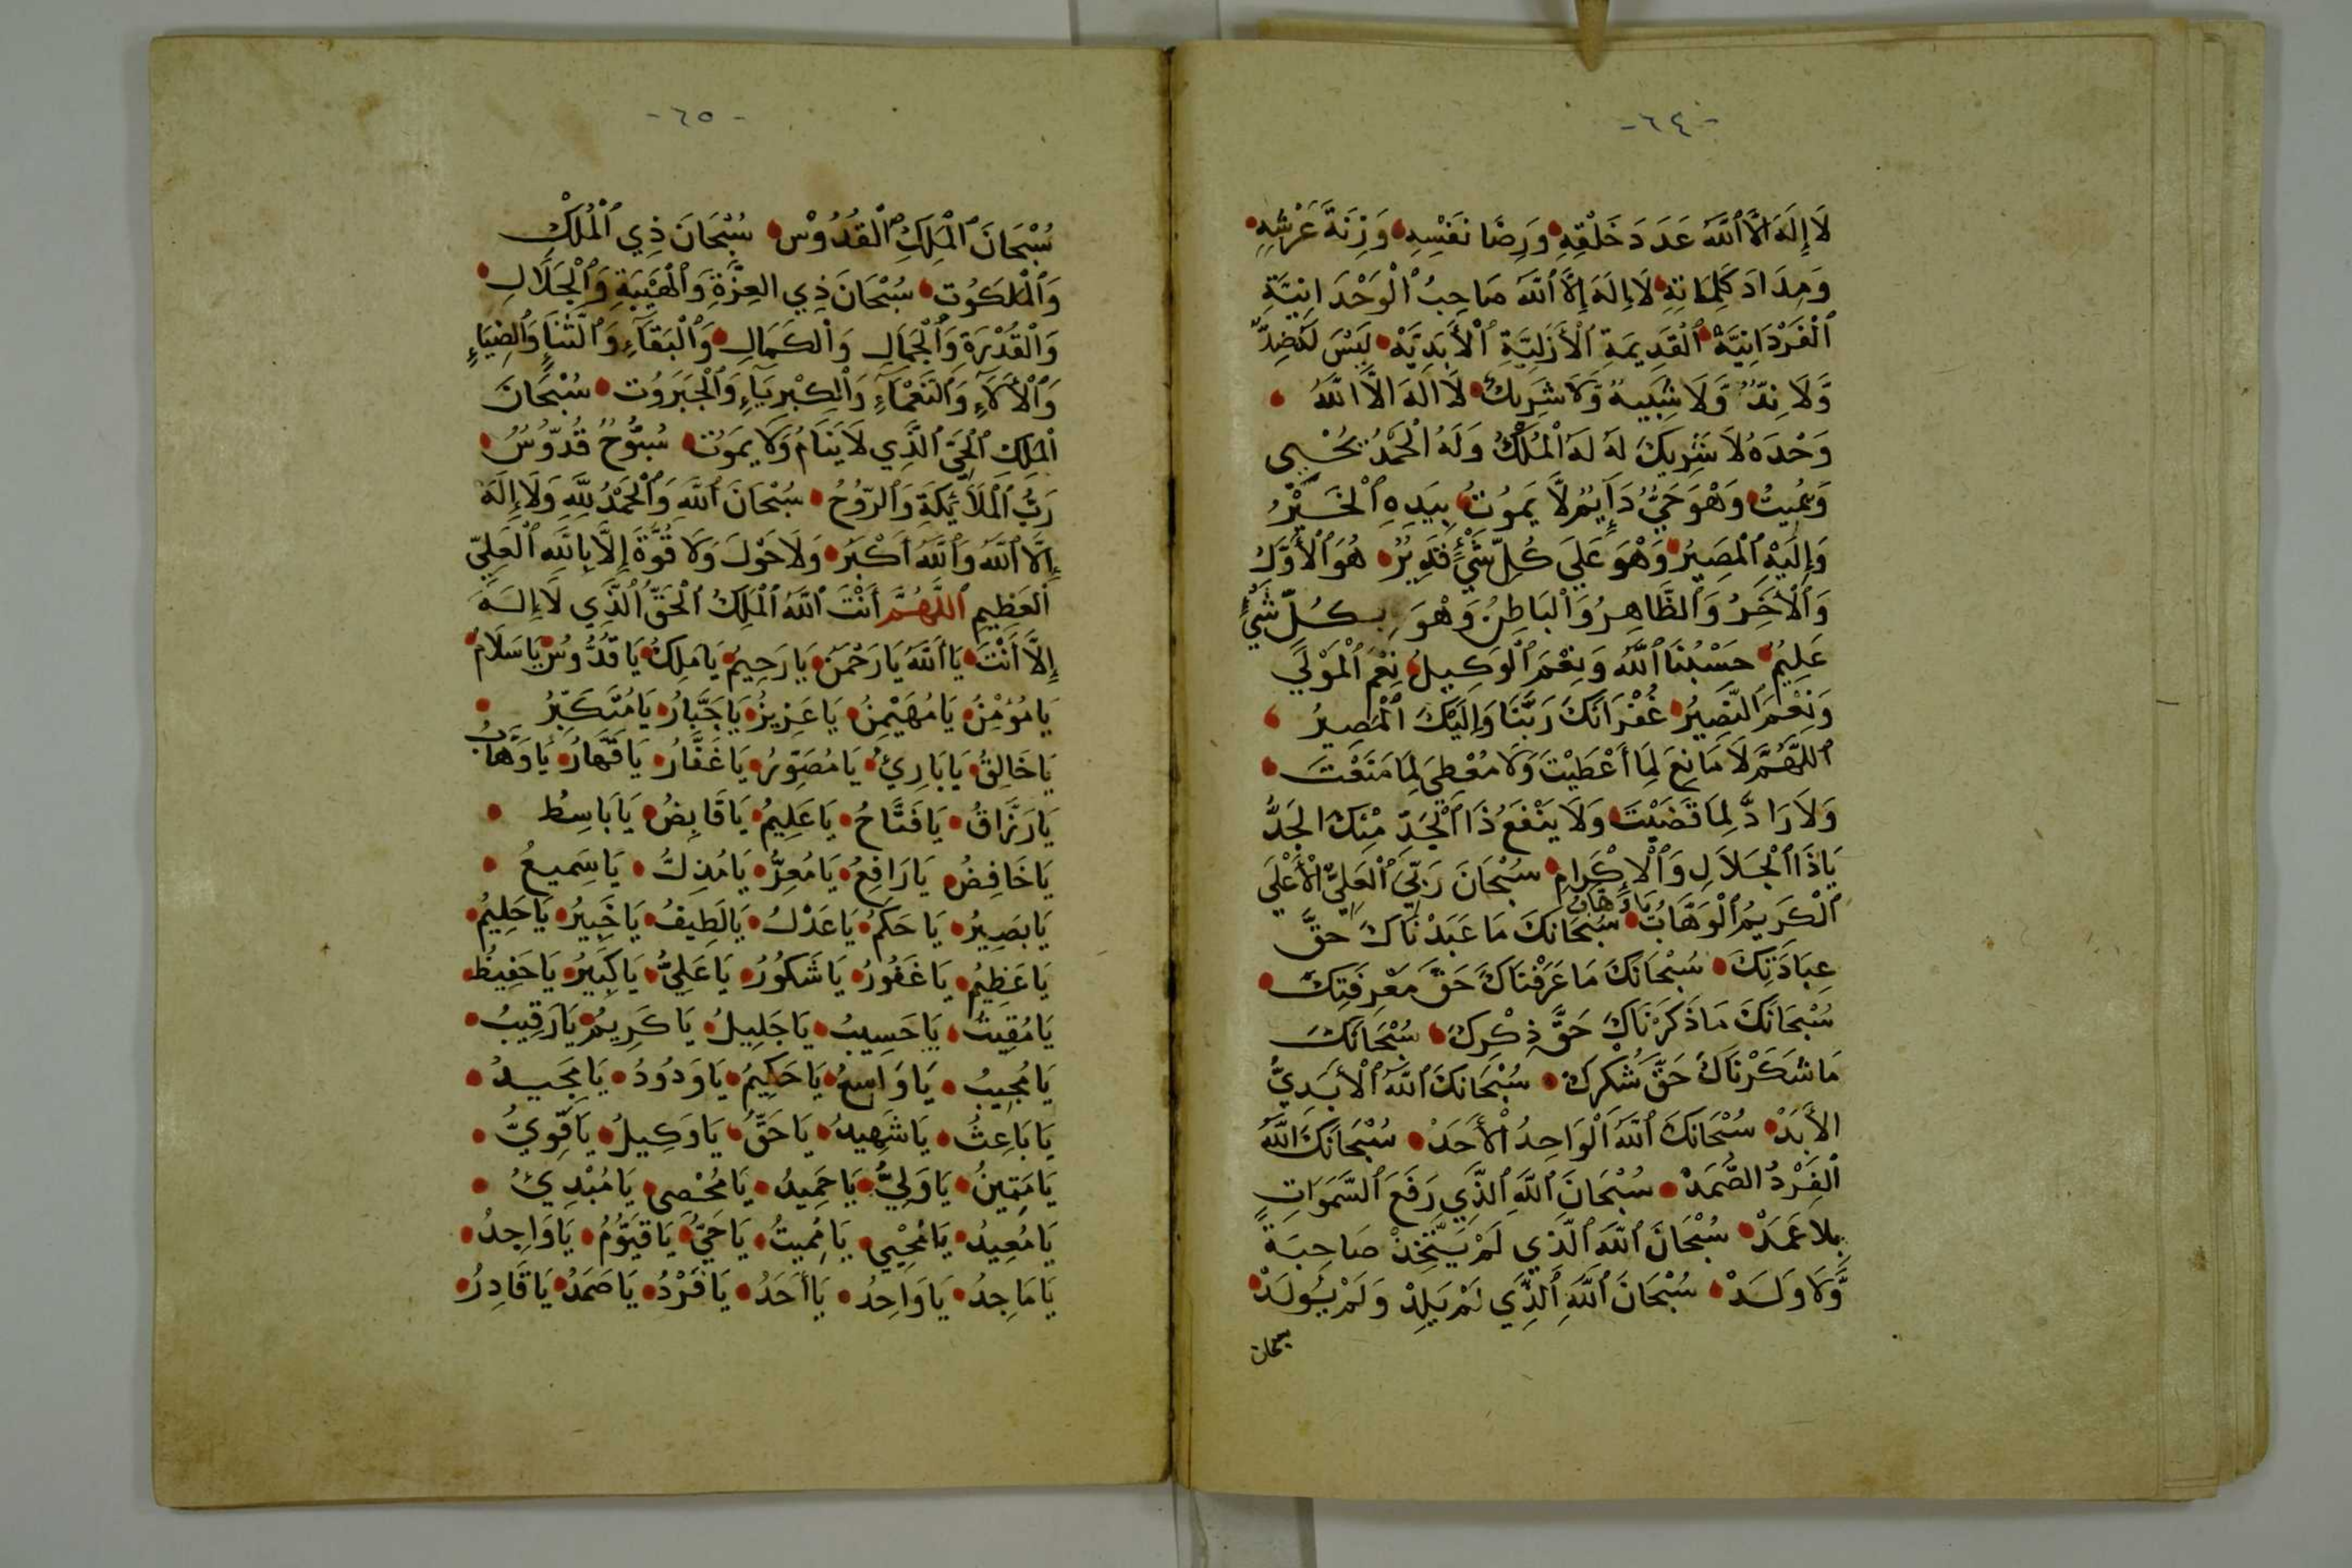 -٦٤-
لَا إِلَهَ إِلَّا ٱللَّهُ عَدَدَ خَلْقِهِ وَرِضَا نَفْسِهِ وَزِنَةَ عَرْشِهِ
وَمِدَادَ كَلِمَاتِهِ لَا إِلَهَ إِلَّا ٱللَّهُ صَاحِبُ ٱلْوَحْدَانِيَّةِ
ٱلْفَرْدَانِيَّةِ ٱلْقَدِيمَةِ ٱلْأَزَلِيَّةِ ٱلْأَبَدِيَّهْ لَيْسَ لَهُ ضِدٌّ
وَّلَا نِدٌّ وَّلَا شَبِيهٌ وَّلَا شَرِيكٌ لَا إِلَهَ إِلَّا اللَّهُ
وَحْدَهُ لَا شَرِيكَ لَهُ لَهُ ٱلْمُلْكُ وَلَهُ الْحَمْدُ يُحْيِي
وَيُمِيتُ وَهْوَ حَيٌّ دَآئِمٌ لَّا يَمُوتُ بِيَدِهِ ٱلْخَيْرُ
وَإِلَيْهِ ٱلْمَصِيرُ وَهْوَ عَلَى كُلِّ شَيْءٍ قَدِيرٌ هُوَ ٱلْأَوَّلُ
وَٱلْأَخِرُ وَٱلظَّاهِرُ وَٱلْبَاطِنُ وَهْوَ بِكُلِّ شَيْءٍ
عَلِيمٌ حَسْبُنَا ٱللَّهُ وَنِعْمَ ٱلْوَكِيلُ نِعْمَ ٱلْمَوْلَى
وَنِعْمَ ٱلنَّصِيرُ غُفْرَانَكَ رَبَّنَا وَإِلَيْكَ ٱلْمَصِيرُ
ٱللَّهُمَّ لَا مَانِعَ لِمَا أَعْطَيْتَ وَلَا مُعْطِيَ لِمَا مَنَعْتَ
وَلَا رَادَّ لِمَا قَضَيْتَ وَلَا يَنْفَعُ ذَا ٱلْجَدِّ مِنْكَ الْجَدُّ
يَاذَا ٱلْجَلَالِ وَٱلْإِكْرَامِ سُبْحَانَ رَبِّيَ ٱلْعَلِيِّ ٱلْأَعْلَى
يَا وَهَّابُ
ٱلْكَرِيمِ ٱلْوَهَّابُ سُبْحَانَكَ مَا عَبَدْنَاكَ حَقَّ
عِبَادَتِكَ سُبْحَانَكَ مَا عَرَفْنَاكَ حَقَّ مَعْرِفَتِكَ
سُبْحَانَكَ مَا ذَكَرْنَاكَ حَقَّ ذِكْرِكَ سُبْحَانَكَ
مَا شَكَرْنَاكَ حَقَّ شُكْرِكَ سُبْحَانَكَ ٱللَّهُ ٱلْأَبَدِيُّ
الْأَبَدْ سُبْحَانَكَ ٱللَّهُ ٱلْوَاحِدُ ٱلْأَحَدْ سُبْحَانَكَ ٱللَّهُ
ٱلْفَرْدُ الصَّمَدْ سُبْحَانَ ٱللَّهِ ٱلَّذِي رَفَعَ ٱلسَّمَوَاتِ
بِلَا عَمَدْ سُبْحَانَ ٱللَّهِ ٱلَّذِي لَمْ يَتَّخِذْ صَاحِبَةً
وَّلَا وَلَدْ سُبْحَانَ ٱللَّهِ ٱلَّذِي لَمْ يَلِدْ وَلَمْ يُولَدْ
سبحان
-٦٥-
سُبْحَانَ ٱلْمَلِكِ ٱلْقُدُّوسْ سُبْحَانَ ذِي ٱلْمُلْكِ
وَٱلْمَلَكُوتِ سُبْحَانَ ذِي العِزَّةِ وَٱلْهَيْبَةِ وَٱلْجَلَالِ
وَٱلْقُدْرَةِ وَٱلْجَمَالِ وَٱلْكَمَالِ وَٱلْبَقَآءِ وَٱلثَّنَاءِ وَٱلضِّيَاءِ
وَٱلْأَلَآءِ وَٱلنَّعْمَآءِ وَٱلْكِبْرِيَآءِ وَٱلْجَبَرُوتِ سُبْحَانَ
ٱلْمَلِكِ ٱلْحَيِّ ٱلَّذِي لَا يَنَامُ وَلَا يَمُوتُ سُبُّوحٌ قُدُّوسٌ
رَبُّ ٱلْمَلَائِكَةِ وَٱلرُّوحُ سُبْحَانَ ٱللَّهِ وَٱلْحَمْدُ لِلَّهِ وَلَا إِلَهَ
إِلَّا ٱللَّهُ وَٱللَّهُ أَكْبَرُ وَلَا حَوْلَ وَلَا قُوَّةَ إِلَّا بِٱللَّهِ ٱلْعَلِيِّ
ٱلْعَظِيمِ ٱللَّهُمَّ أَنْتَ ٱللَّهُ ٱلْمَلِكُ ٱلْحَقُّ ٱلَّذِي لَا إِلَهَ
إِلَّا أَنْتَ يَا ٱللَّهُ يَا رَحْمَنُ يَا رَحِيمُ يَا مَلِكُ يَا قُدُّوسُ يَا سَلَامُ
يَا مُؤْمِنُ يَا مُهَيْمِنُ يَا عَزِيزُ يَا جَبَّارُ يَا مُتَكَبِّرُ
يَا خَالِقُ يَا بَارِئُ يَا مُصَوِّرُ يَا غَفَّارُ يَا قَهَّارُ يَا وَهَّابُ
يَا رَزَّاقُ يَا فَتَّاحُ يَا عَلِيمُ يَا قَابِضُ يَا بَاسِطُ
يَا خَافِضُ يَا رَافِعُ يَا مُعِزُّ يَا مُذِلُّ يَا سَمِيعُ
يَا بَصِيرُ يَا حَكَمُ يَا عَدْلُ يَا لَطِيفُ يَا خَبِيرُ يَا حَلِيمُ
يَا عَظِيمُ يَا غَفُورُ يَا شَكُورُ يَا عَلِيُّ يَا كَبِيرُ يَا حَفِيظُ
يَا مُقِيتُ يَا حَسِيبُ يَا جَلِيلُ يَا كَرِيمُ يَا رَقِيبُ
يَا مُجِيبُ يَا وَاسِعُ يَا حَكِيمُ يَا وَدُودُ يَا مَجِيدُ
يَا بَاعِثُ يَا شَهِيدُ يَا حَقُّ يَا وَكِيلُ يَا قَوِيُّ
يَا مَتِينُ يَا وَلِيُّ يَا حَمِيدُ يَا مُحْصِي يَا مُبْدِئُ
يَا مُعِيدُ يَا مُحْيِي يَا مُمِيتُ يَا حَيُّ يَا قَيُّومُ يَا وَاجِدُ
يَا مَاجِدُ يَا وَاحِدُ يَا أَحَدُ يَا فَرْدُ يَا صَمَدُ يَا قَادِرُ